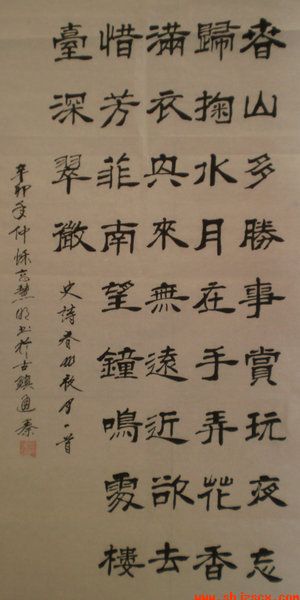 春山多勝事賞玩夜忘
歸掬水月在手弄花香
滿衣興來無遠近欲去
惜芳菲南望鐘鳴處樓
臺深翠微
史詩春山夜月一首
辛卯 仲 志慧明书於古鎮通秦
www.shjzscx.com